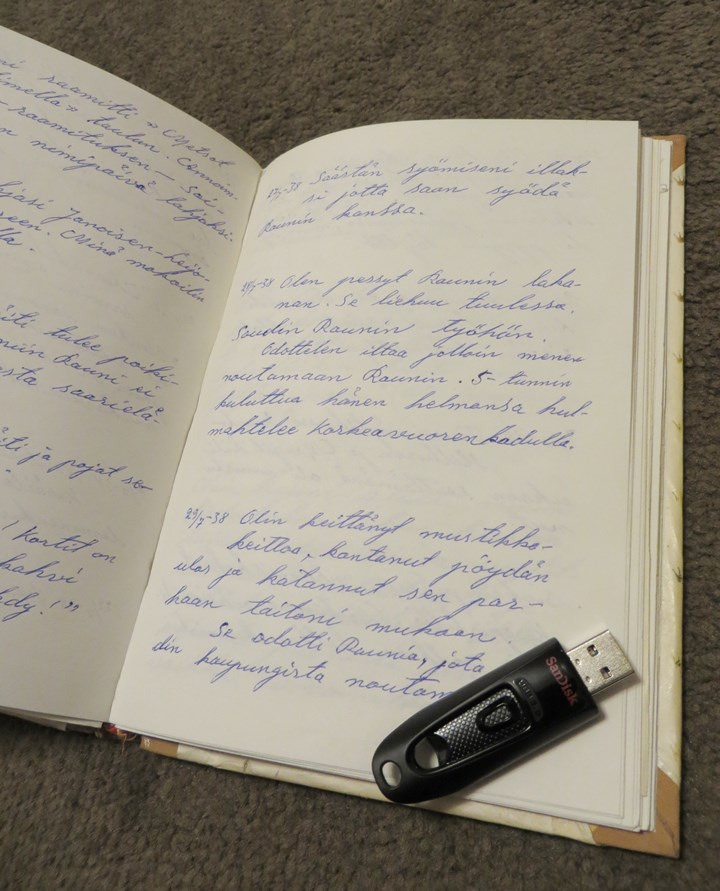 ni raamitti » Metsol
timella» taulun. Onnom-
- raamituksen - Sai-
n nimipäivä lahjaksi.
Janoisen-keiju-
seen. Minä mahoilin
lla.
iti tulee poiki-
niin Rauni ei
esta saarielä-
iti ja pojat se-
! Kortit on
kahvi
hdy!"
27/7-38 Säästän syömiseni illak-
si jotta saan syödä
Raunin kanssa.
28/7-38 Olen pessyt Raunin laka-
nan. Se liehuu tuulessa.
Soudin Raunin työhön.
Odottelen iltaa jolloin menen
noutamaan Raunin. 5-tunnin
kuluttua hänen helmansa hul-
mahtelee Korkeavuorenkadulla.
29/7-38 Olin keittänyt mustikka-
keittoa, kantanut pöydän
ulos ja katannut sen par-
haan taitoni mukaan.
Se odotti Raunia, jota
din kaupungista noutam
SanDisk
Ultra